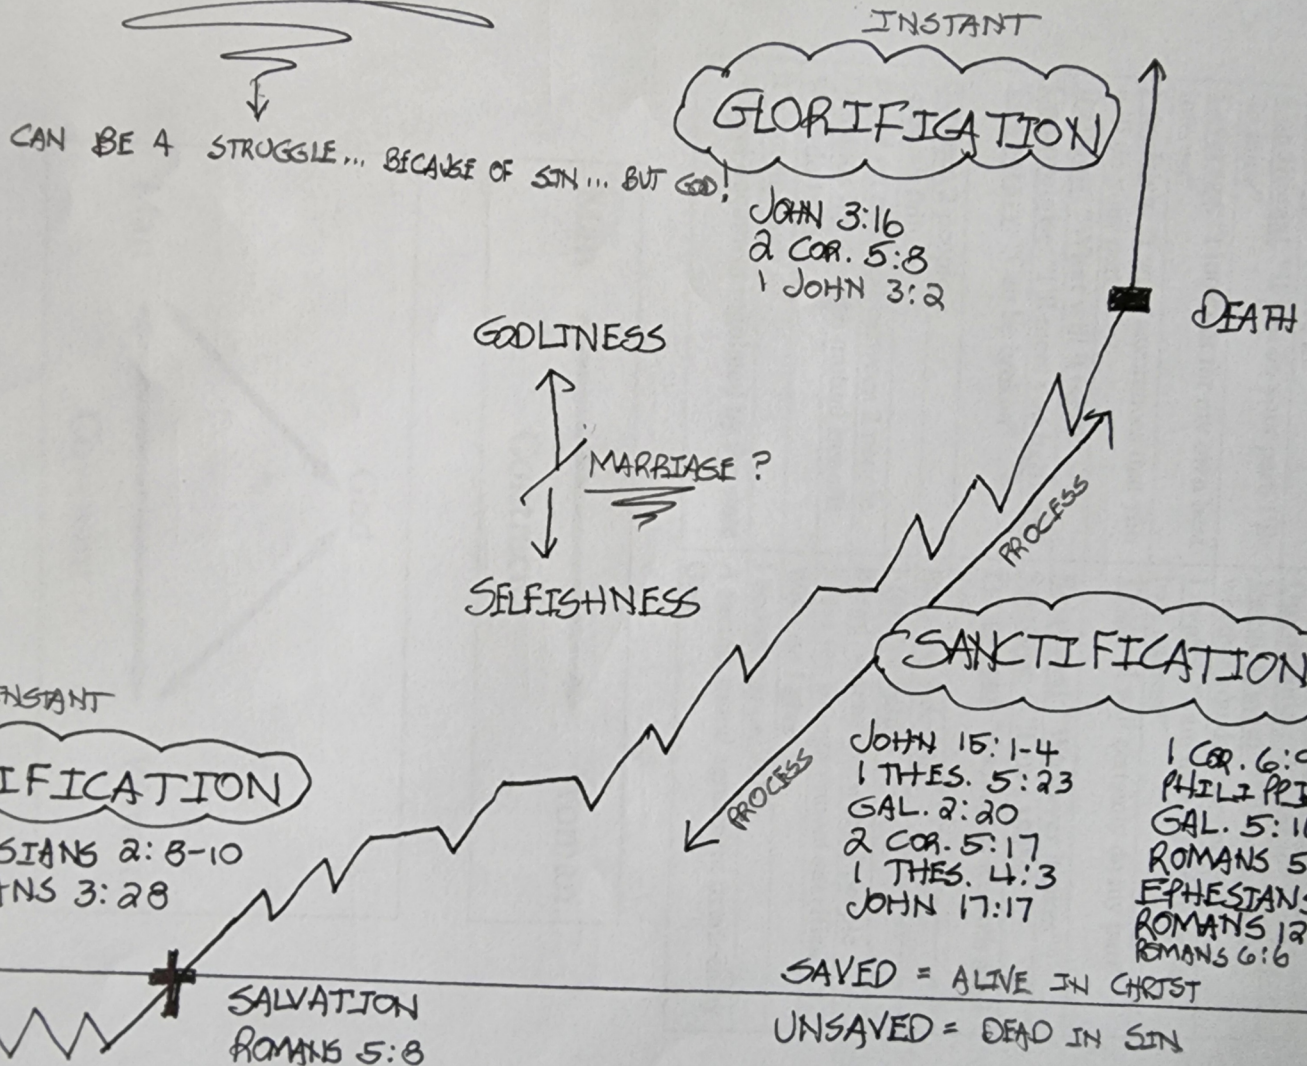 INSTANT
GLORIFICATION
CAN BE A STRUGGLE... BECAUSE OF SIN... BUT GOD!
JOHN 3:16
2 COR. 5:8
1 JOHN 3:2
DEATH
GODLINESS
MARRIAGE ?
SELFISHNESS
PROCESS
SANCTIFICATION
PROCESS
JOHN 15:1-4
1 THES. 5:23
GAL. 2:20
2 COR. 5:17
1 THES. 4:3
JOHN 17:17
1 COR. 6:9
PHILIPPI
GAL. 5:1
ROMANS 5
EPHESIANS
ROMANS 12
ROMANS 6:6
NSTANT
IFICATION
SIANS 2:8-10
ANS 3:28
SALVATION
ROMANS 5:8
SAVED = ALIVE IN CHRIST
UNSAVED = DEAD IN SIN